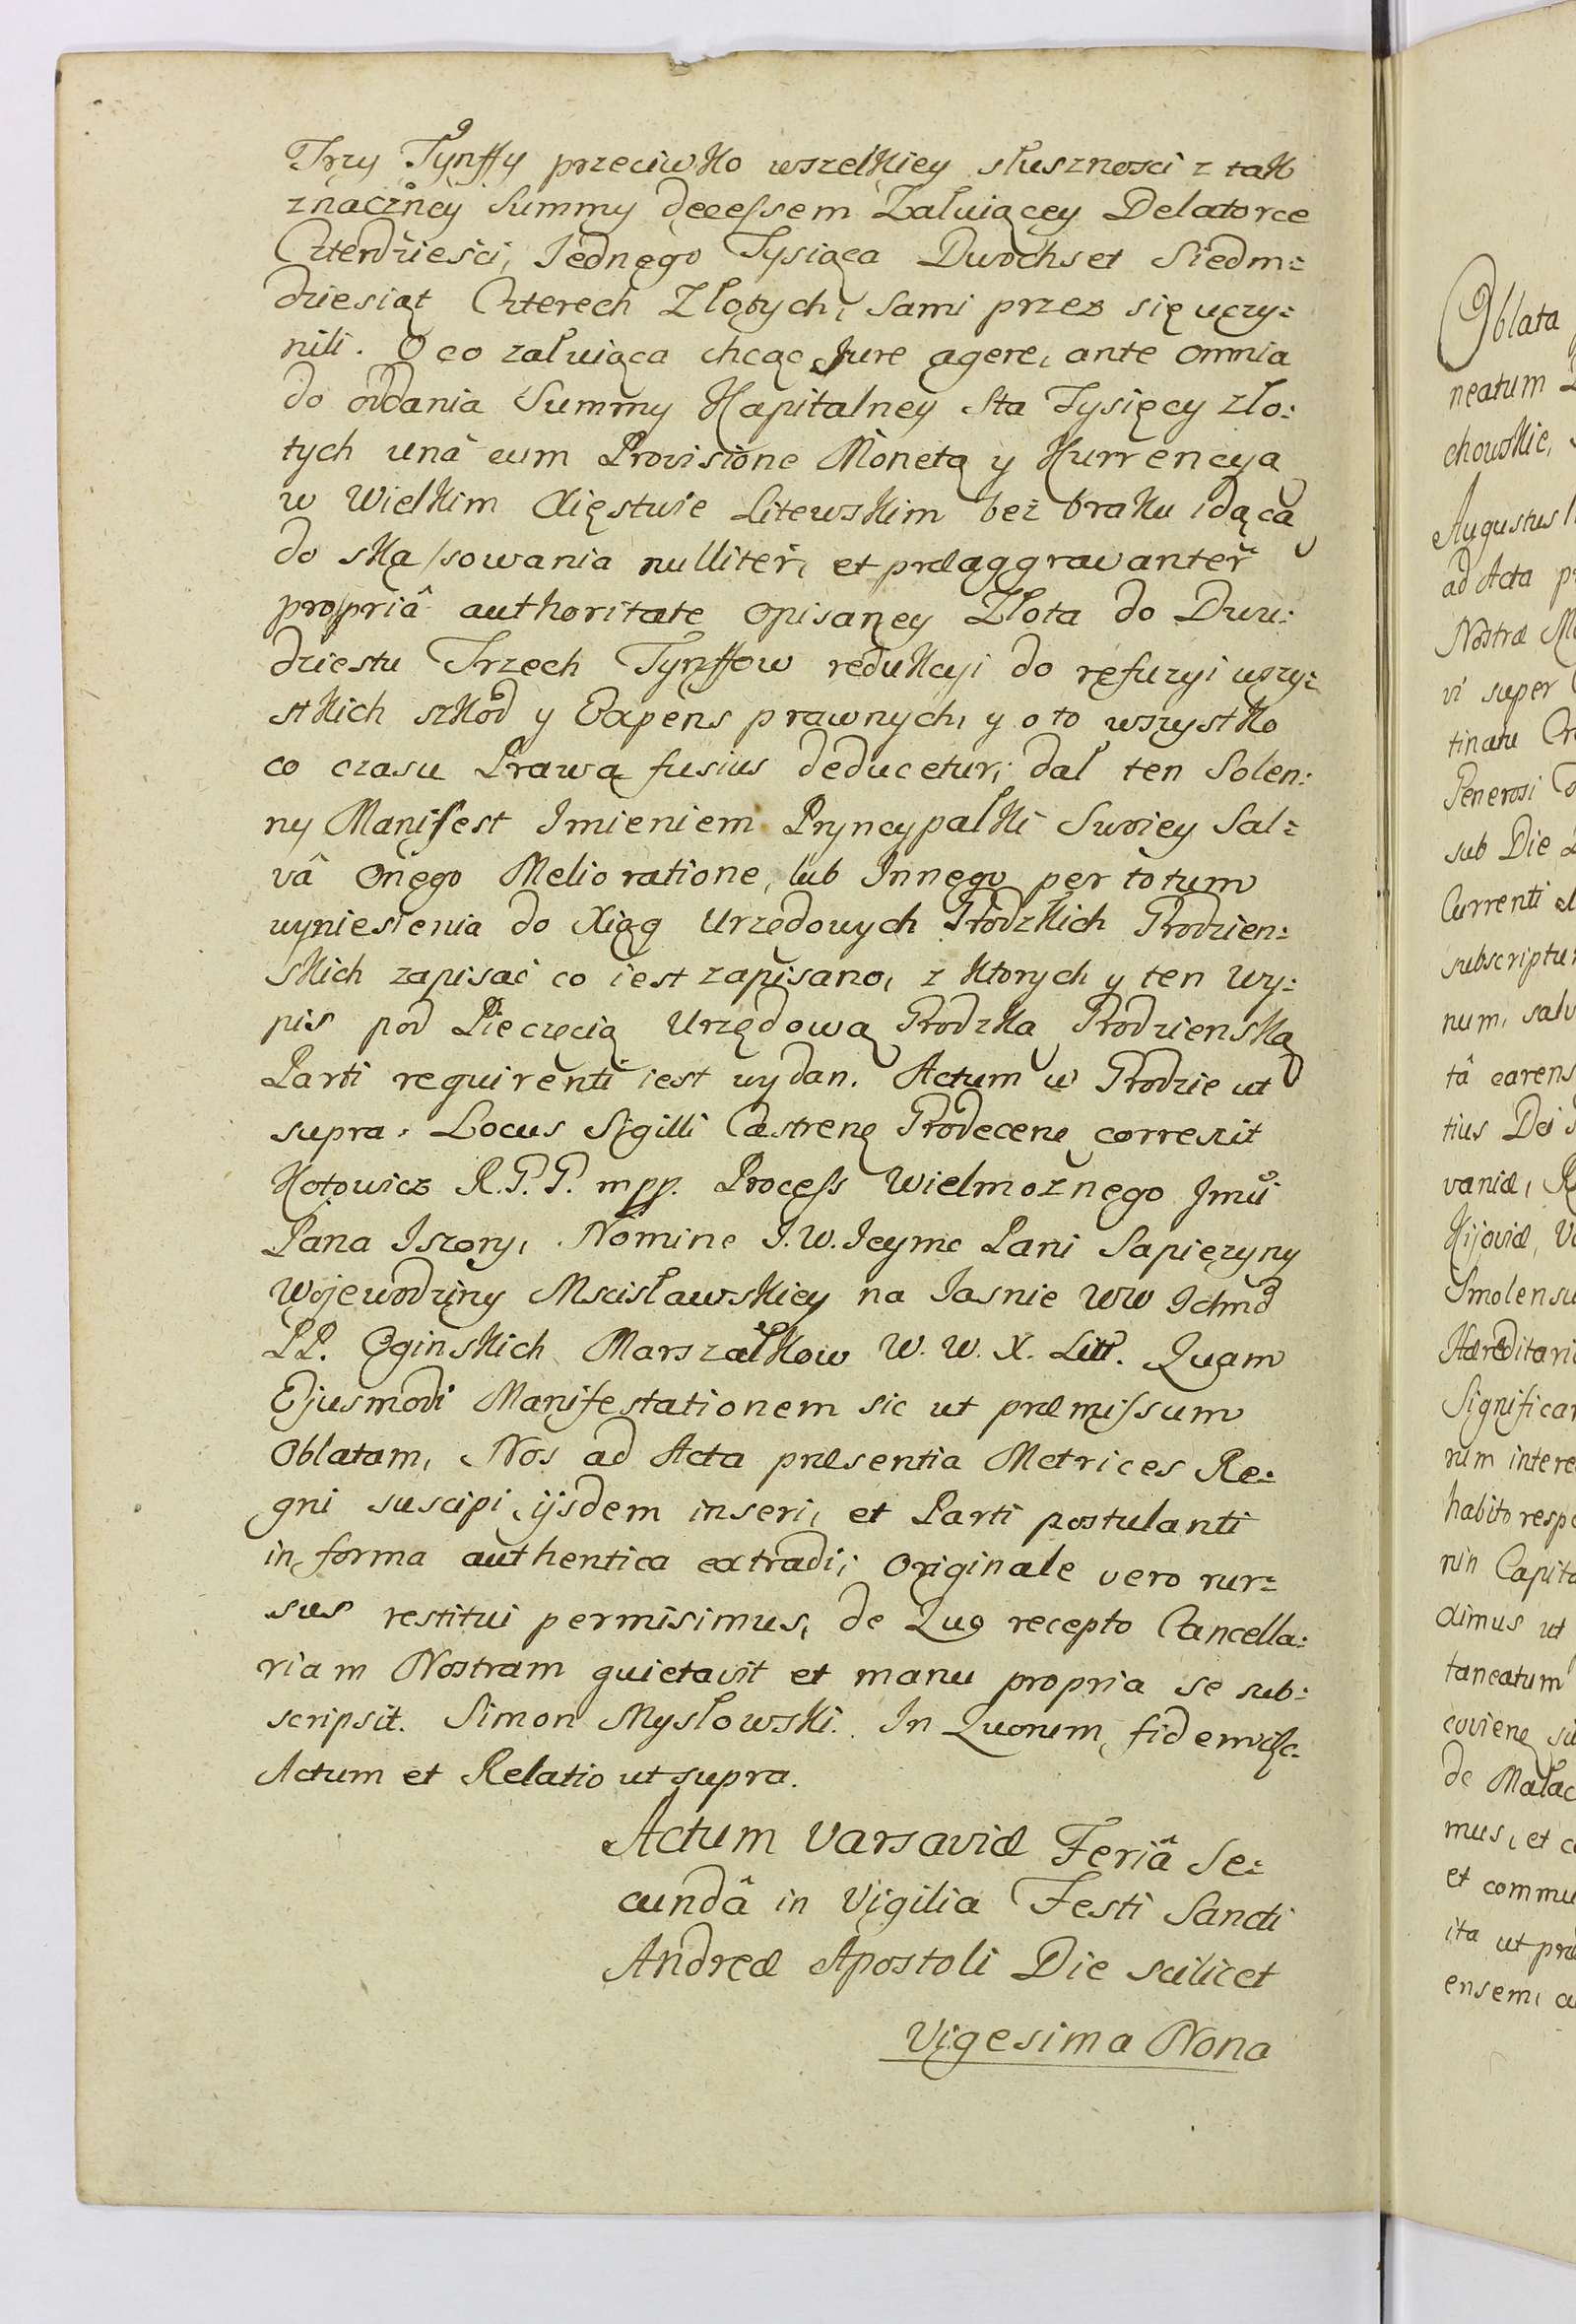 Trzy Tynffy przeciwko wszelkiey słusznosci z tak
znaczney Summy decessem Załuiącey Delatorce
Czterdziesci, Jednego Tysiąca Dwochset Siedm=
dziesiąt Czterech Złotych, sami przez się uczy=
nili. O co załuiąca chcąc Jure agere, ante omnia
do oddania Summy Kapitalney Sta Tysięcy zło:
tych unâ cum Provisione Monetą y Kurrencyą
w Wielkim Xięstwie Litewskim bez braku idącą
do skassowania nulliter, et præaggravanter
propriâ authoritate opisaney Złota do Dwu:
dziestu Trzech Tynffow redukcyi do refuzyi wszy=
stkich szkod y Expens prawnych, y o to wszystko
co czasu Prawa fusius deducetur, dał ten Solen:
ny Manifest Imieniem Pryncypałki Swoiey Sal=
vâ onego Melioratione, lub Innego per totum
uyniesienia do Xiąg Urzędowych Grodzkich Grodzien:
skich zapisać co iest zapisano, z ktorych y ten wy:
pis pod Pieczęcią Urzędową Grodzką Grodzienską
Parti requirenti iest wydan. Actum w Grodzie ut
supra. Locus Sigilli Castrens Grodecens correxit
Kotowicz R. G. G. mpp. Process Wielmożnego Jmci
Pana Iszory, Nomine J. W. Jeymc Pani Sapieżyny
Wojewodziny Mscisławskiey na Jasnie WW Ichmć
PP. Oginskich Marszałkow W. W. X. Litt. Quam
Ejusmodi Manifestationem sic ut præmissum
Oblatam, Nos ad Acta præsentia Metrices Re=
gni suscipi, ijsdem inseri, et Parti postulanti
in forma authentica extradi, Originale vero rur=
sus restitui permisimus, de Quo recepto Cancella:
riam Nostram quietavit et manu propria se sub:
scripsit. Simon Mysłowski. In Quorum fidem &c.
Actum et Relatio ut supra.
Actum Varsaviæ Feriâ Se=
cundâ in Vigilia Festi Sancti
Andreæ Apostoli Die scilicet
Vigesima Nona
Oblata
neatum
chowskie,
Augustus
ad Acta
Nostræ
vi super
tinatu
Generosi
sub Die
Currenti
subscriptu
num, salv
tâ carens
tius Dei
vaniæ,
Kijoviæ,
Smolens
Hæreditari
Significa
rum intere
habito resp
nin Capit
dimus ut
taneatum
coviens
de Małac
mus, et c
et commu
ita ut præ
ensem, a